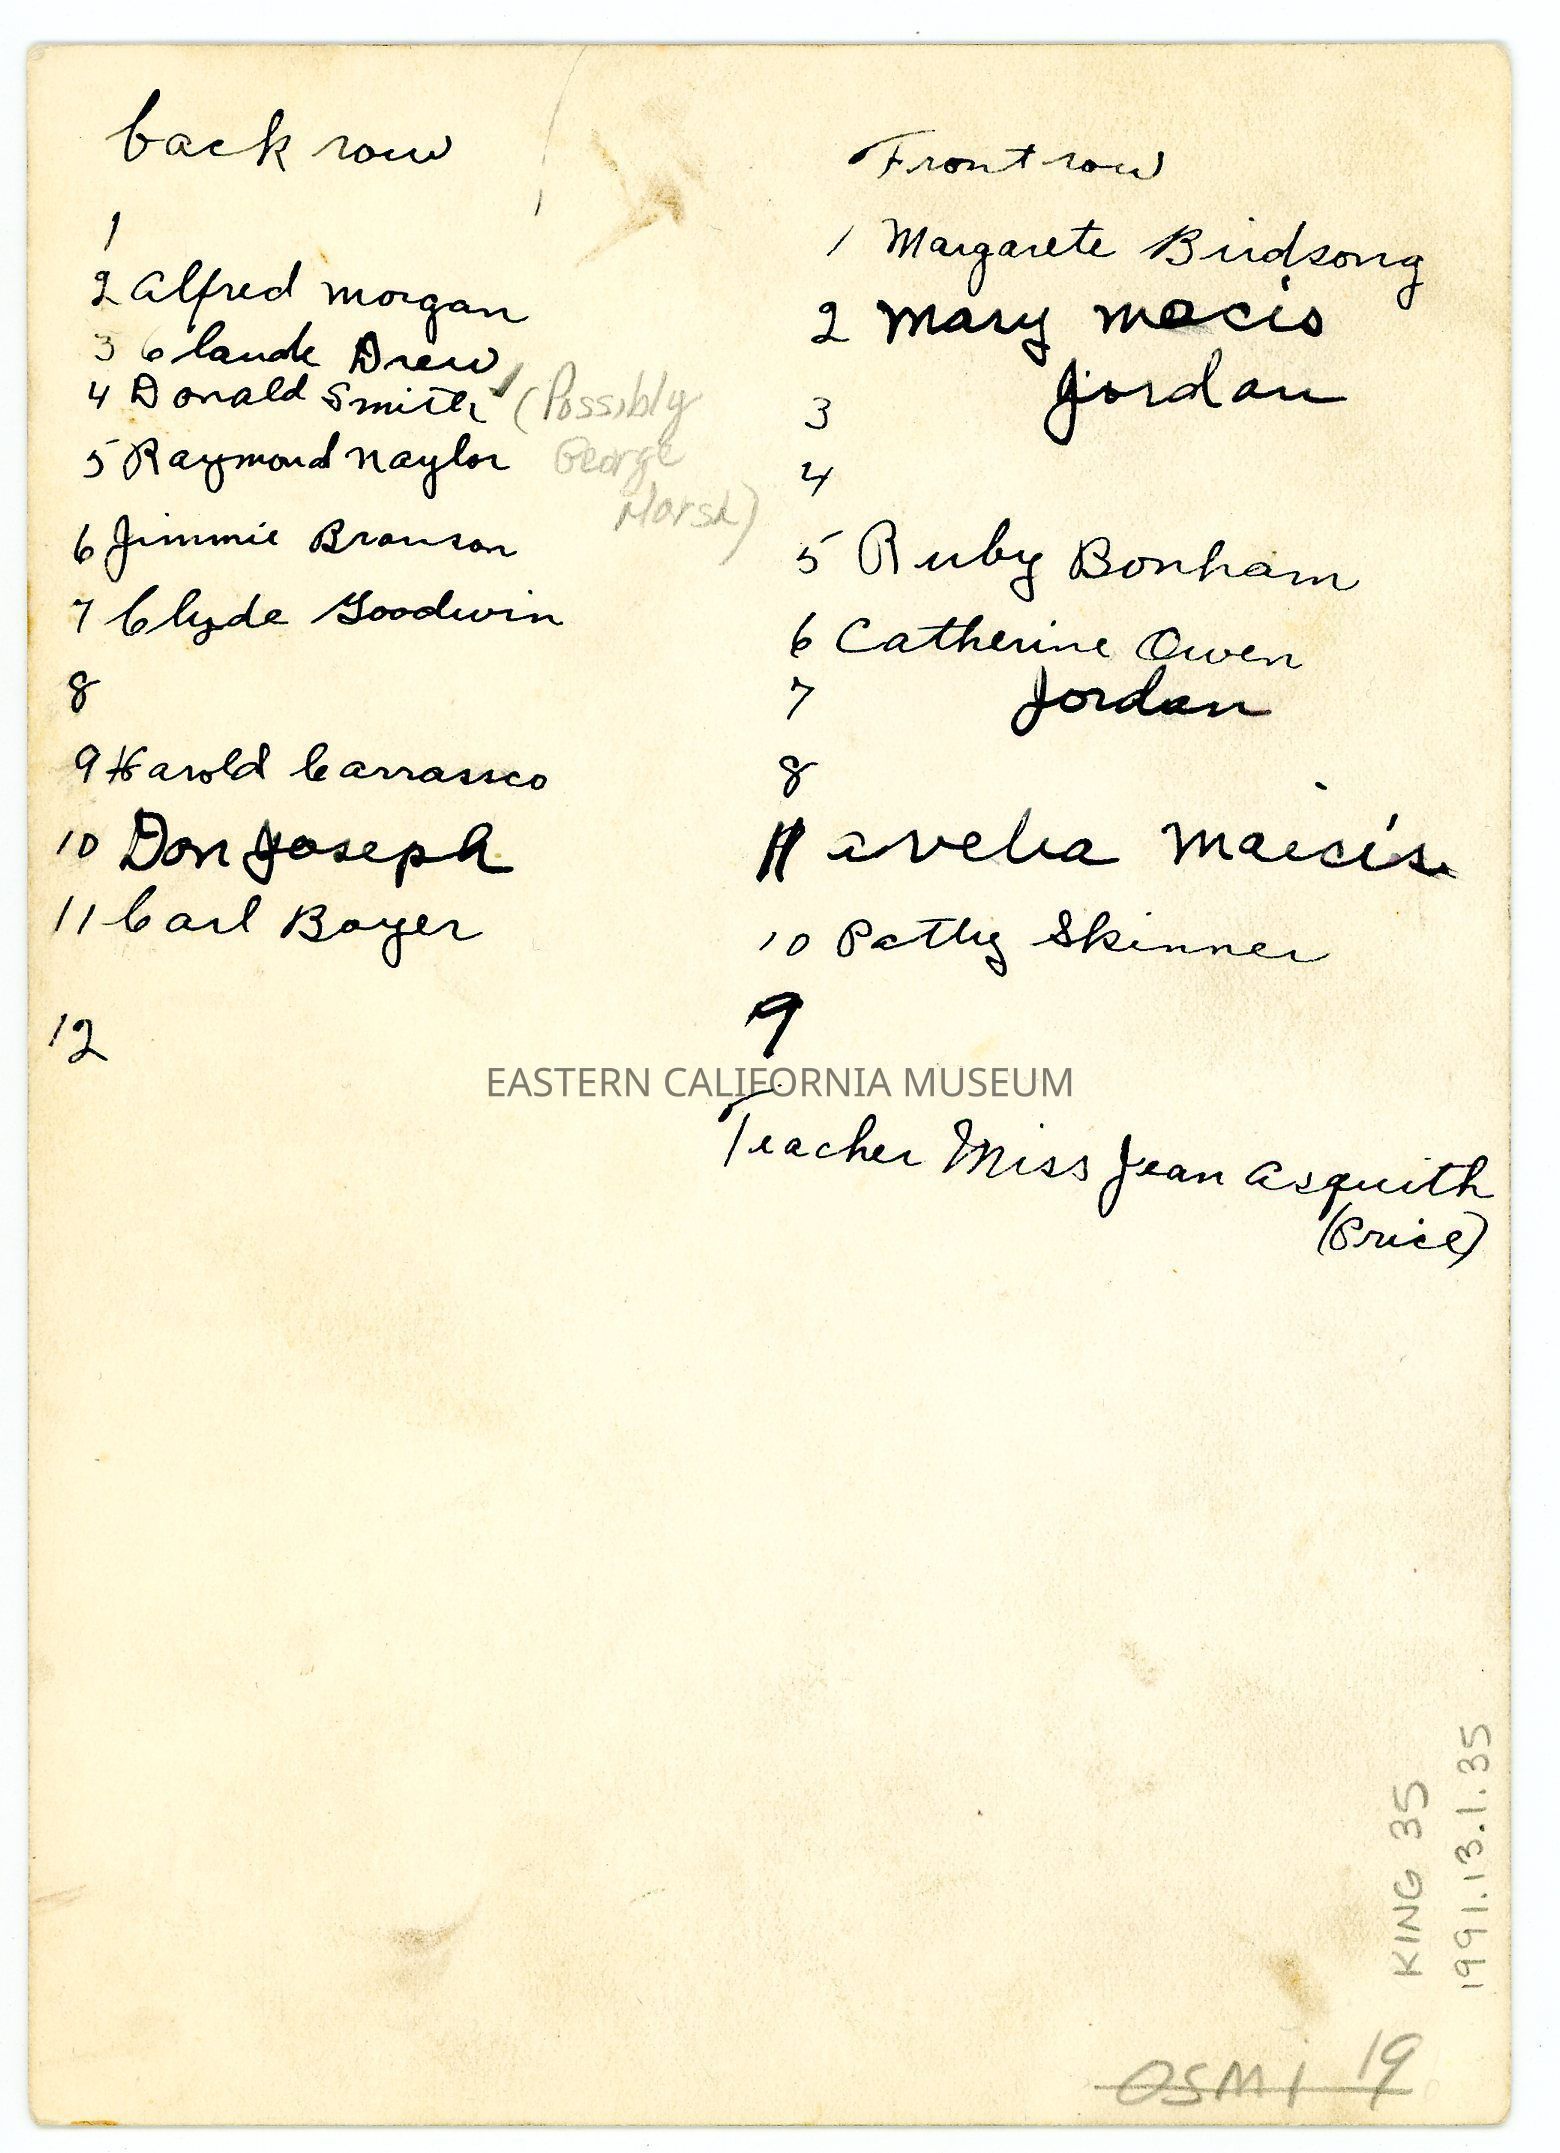 back row
1
2 Alfred Morgan
3 Claude Drew
4 Donald Smith (Possibly George Marsh)
5 Raymond Naylor
6 Jimmie Branson
7 Clyde Goodwin
8
9 Harold Carrassco
10 Don Joseph
11 Carl Boyer
12
Front row
1 Margarete Birdsong
2 Mary Macis
3 Jordan
4
5 Ruby Bonham
6 Catherine Owen
7 Jordan
8
avelia Macis
10 Pathy Skinner
9
EASTERN CALIFORNIA MUSEUM
Teacher Miss Jean Asquith
(Price)
KING 35
1991.13.1.35
OSM 1 19